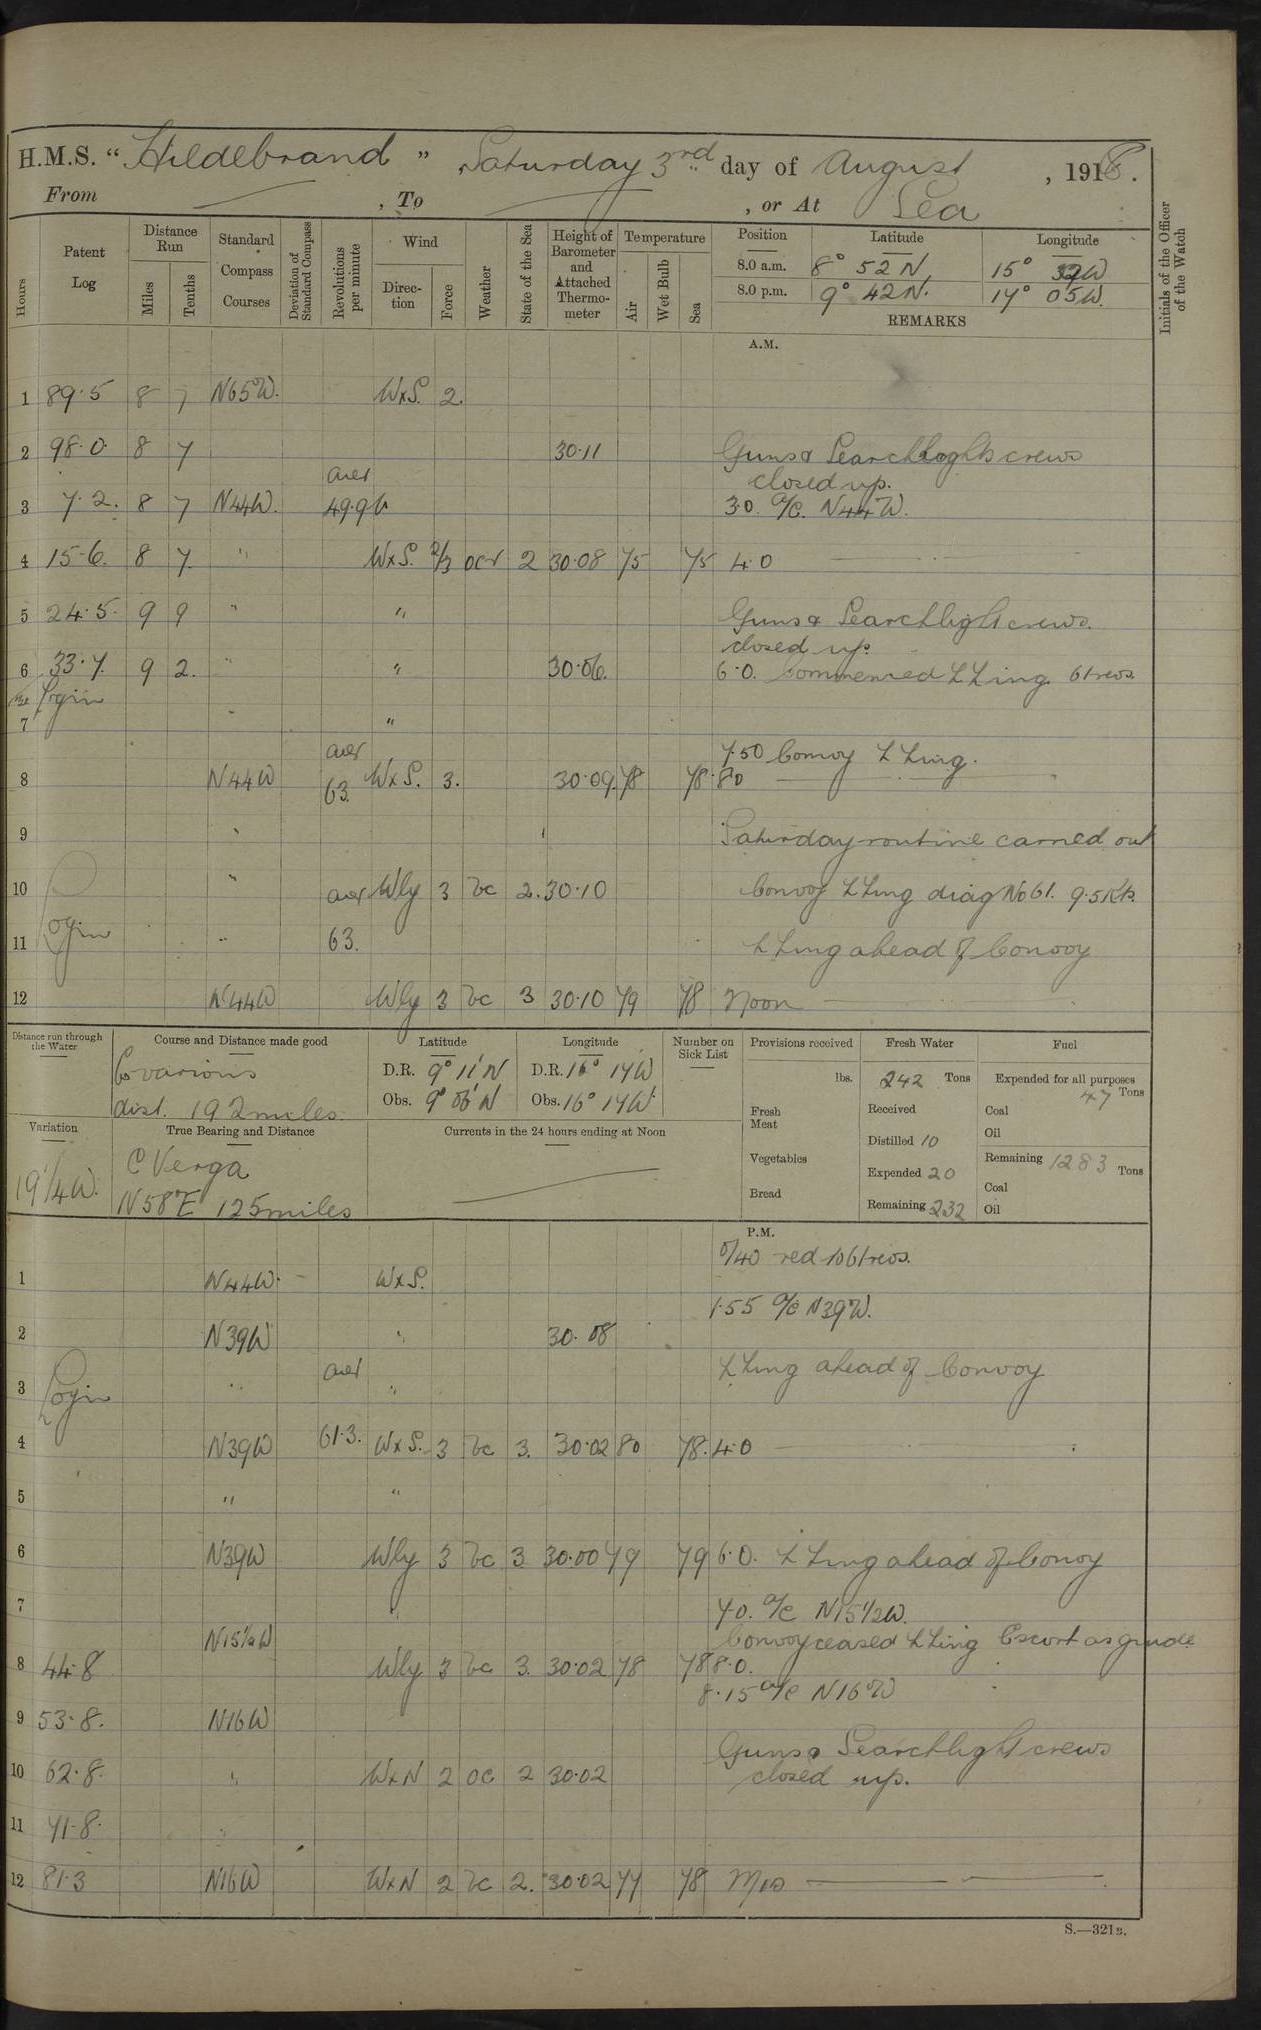 H.M.S. "Hildebrand" Saturday 3rd day of August, 1918.
From — , To — , or At Sea
Hours
Patent Log
Distance Run
Miles
Tenths
Standard Compass Courses
Deviation of Standard Compass
Revolutions per minute
Wind
Direction
Force
Weather
State of the Sea
Height of Barometer and Attached Thermometer
Temperature
Air
Wet Bulb
Sea
Position Latitude Longitude
8.0 a.m. 8° 52 N 15° 32 W
8.0 p.m. 9° 42 N. 17° 05 W.
REMARKS
Initials of the Officer of the Watch
A.M.
1 89·5 8 7 N65W. WxS. 2.
2 98·0 8 7 30·11 Guns & Searchlights crews
closed up.
aver
3 7·2. 8 7 N44W. 49·96 3·0. a/c. N44W.
4 15·6. 8 7. " WxS. 2/3 ocr 2 30·08 75 75 4·0 —
5 24·5. 9 9 " " Guns & Searchlight crews.
closed up.
6 33·7. 9 2. " " 30·06. 6·0. Commenced ZZing. 61revs.
Log in
7 " "
aver
7·50 Convoy ZZing.
8 N44W 63. WxS. 3. 30·09. 78 78 8·0 —
9 " Saturday routine carried out
10 " aver Wly 3 bc 2. 30·10 Convoy ZZing diag No 61. 9·5 Kts.
Log in
11 " 63. ZZing ahead of Convoy
12 N44W Wly 3 bc 3 30·10 79 78 Noon —
Distance run through the Water
Course and Distance made good
Co various
dist. 192 miles.
Latitude
D.R. 9° 11' N
Obs. 9° 06' N
Longitude
D.R. 16° 14' W
Obs. 16° 14' W
Number on Sick List
Provisions received
lbs.
Fresh Meat
Vegetables
Bread
Fresh Water
242 Tons
Received
Distilled 10
Expended 20
Remaining 232
Fuel
Expended for all purposes
47 Tons
Coal
Oil
Remaining 1283 Tons
Coal
Oil
Variation
19 1/4 W.
True Bearing and Distance
C Verga
N58°E 125 miles
Currents in the 24 hours ending at Noon
P.M.
0/40 red to 61revs.
1 N44W. WxS.
1·55 a/c N39W.
2 N39W " 30·08
3 Log in " aver " ZZing ahead of Convoy
4 N39W 61·3. WxS. 3 bc 3. 30·02 80 78. 4·0 —
5 " "
6 N39W Wly 3 bc 3 30·00 79 79 6·0. ZZing ahead of Convoy
7 " 7·0. a/c N15 1/2W.
N15 1/2W Convoy ceased ZZing Escort as guide
8 44·8 Wly 3 bc 3. 30·02 78 78 8·0.
8·15 a/c N16°W
9 53·8. N16W
Guns & Searchlight crews
10 62·8. " WxN 2 oc 2 30·02 closed up.
11 71·8. "
12 81·3 N16W WxN 2 bc 2. 30·02 77 78 Mid —
S.—321B.